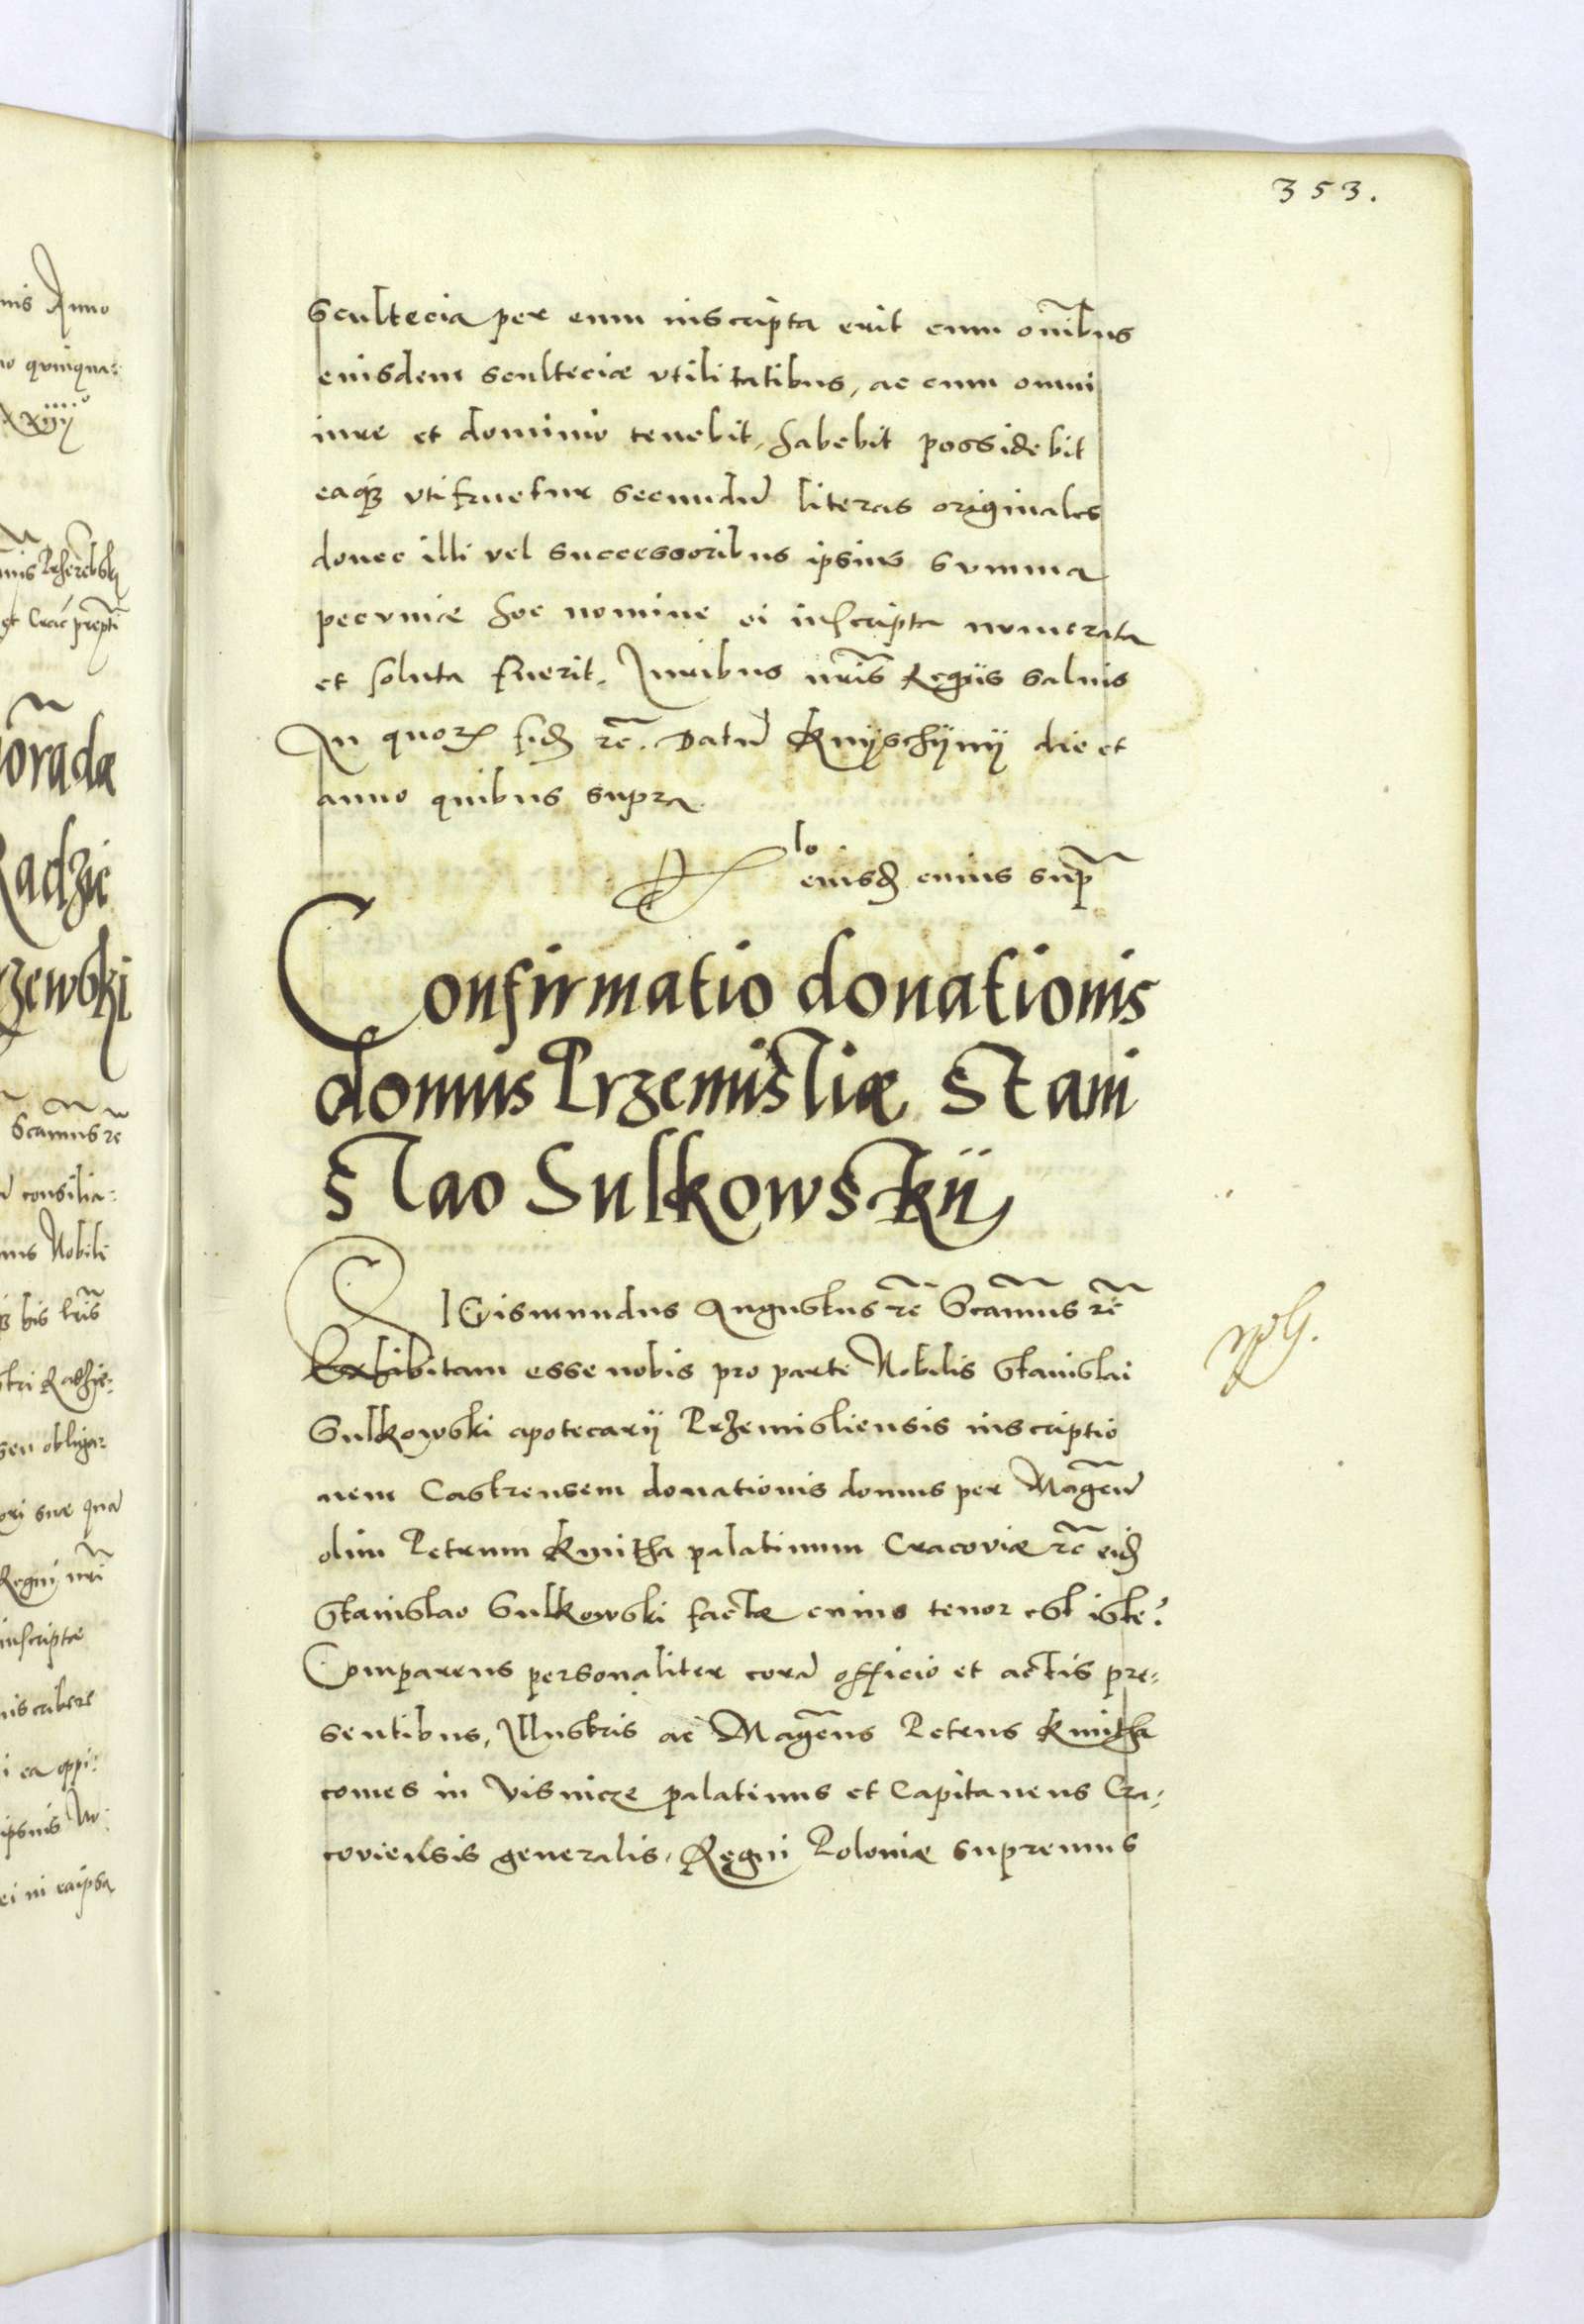 353.
Scultecia per eum inscripta erit cum om̃ibus
eiusdem sculteciæ vtilitatibus, ac cum omni
iure et dominio tenebit, habebit possidebit
eaqꝫ vtifruetur secundũ literas originales
donec illi vel successoribus ipsius summa
pecuniæ hoc nomine ei inscripta numerata
et soluta fuerit. Iuribus nr̃is Regiis saluis
In quorꝝ fidẽ rc̃. Datũ Knÿschÿnÿ die et
anno quibus supra.
Rlo eiusdẽ cuius sup̃
Confirmatio donationis
domus Przemisliæ Stani
slao Sulkowskii
SIGismundus Augustus rc̃ Sc̃amus rc̃
Exhibitam esse nobis pro parte Nobilis Stanislai
Sulkowski apotecarÿ Przemisliensis inscriptio
nem Castrensem donationis domus per Mag̃cũ
olim Petrum Kmitha palatinum Cracoviæ rc̃ eidẽ
Stanislao Sulkowski factæ cuius tenor est iste:
Comparens personaliter corã officio et actis pre-
sentibus, Illustris ac Mag̃cus Petrus Kmitha
comes in Visnicze palatinus et Capitaneus Cra-
coviensis generalis, Regni Poloniæ supremus
mis Anno
no quinqua:
orada
Radzie
rzewski
Sc̃amus rc̃
consilia:
Nobili
his lr̃is
seu obligar
Regni nr̃i
inscriptæ
inscribere